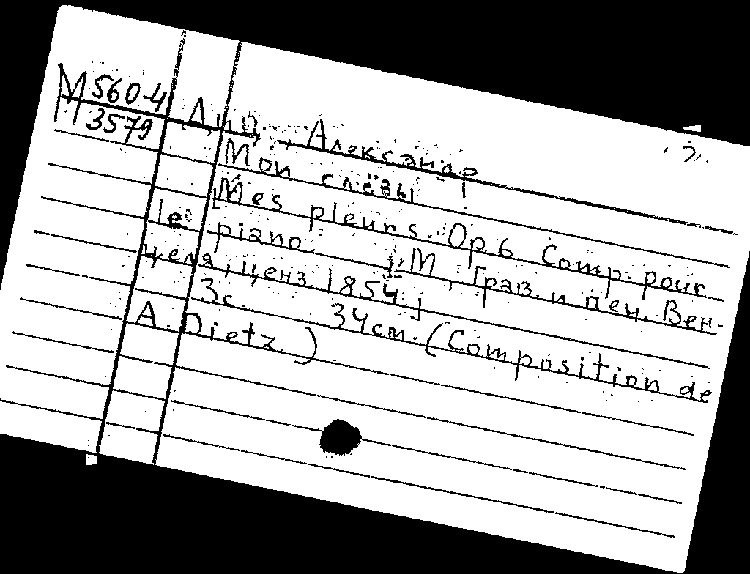 М 560-4
3579
Диц, Александр
Мои слёзы!
[Mes pleurs. Op. 6 Comp. pour
le piano. М., Грав. и печ. Вен-
целя, ценз 1854.]
3с. 34см. (Composition de
A. Dietz.)